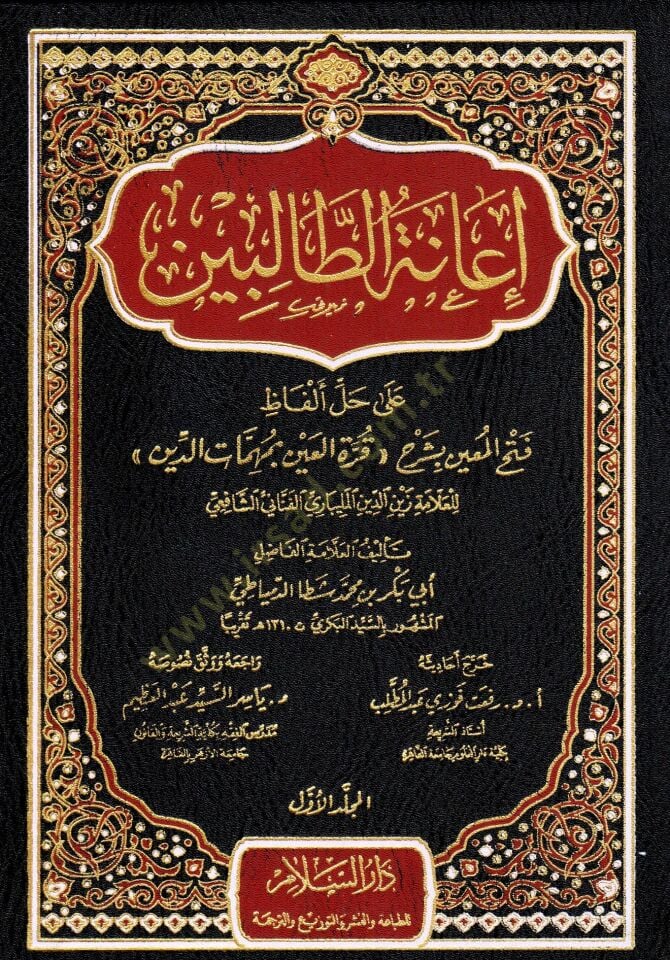 إِعَانَةُ الطَّالِبِين
عَلَى حَلِّ أَلْفَاظِ
فَتْحِ المُعِين بِشَرْحِ «قُرَّة العَيْن بمُهِمَّات الدِّين»
لِلعَلّامَة زَيْنِ الدِّين المليباري الفَنَاني الشَّافِعِي
تأليف العَلّامة الفَاضِل
أبي بَكْر بن محمّد شطا الدِّمياطِيّ
المشهُور بالسَّيّد البَكري ت ١٣١٠هـ تَقْرِيبًا
خَرَّجَ أحَادِيثَهُ
أ. د. رفعت فوزي عبد المطلب
أستاذ الشريعة
بكلية دار العلوم جامعة القاهرة
رَاجَعَهُ وَوَثَّقَ نُصُوصَهُ
د. ياسر السَّيِّد عَبْد العَظِيم
مدرس الفقه بكلية الشريعة والقانون
جامعة الأزهر بالقاهرة
المجلّد الأوّل
دَارُ السَّلَام
للطباعة والنشر والتوزيع والترجمة